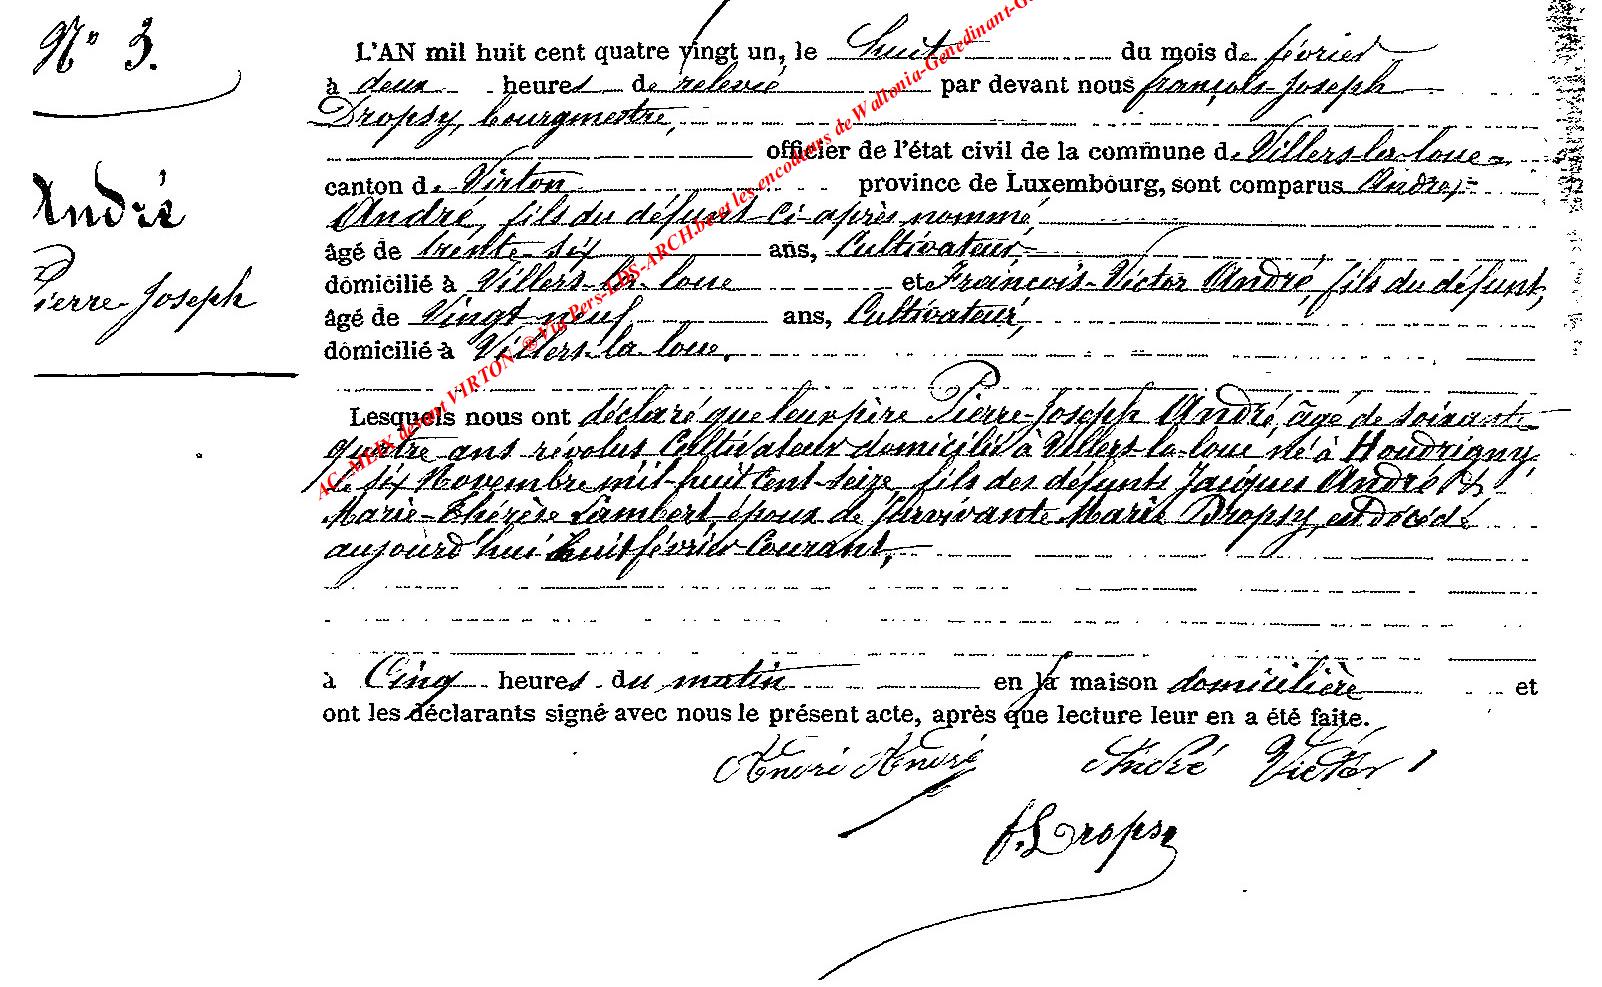 N° 3.
André
Pierre-Joseph
L'AN mil huit cent quatre vingt un, le huit du mois de février
à deux heures de relevée par devant nous françois-Joseph
Dropsy, bourgmestre,
officier de l'état civil de la commune de Villers-la-loue
canton de Virton province de Luxembourg, sont comparus André,
André, fils du défunt ci-après nommé,
âgé de trente-six ans, Cultivateur,
domicilié à Villers-la-loue et François-Victor André, fils du défunt,
âgé de Vingt neuf ans, Cultivateur,
domicilié à Villers-la-loue.
Lesquels nous ont déclaré que leur père Pierre-Joseph André, âgé de soixante-
quatre ans révolus Cultivateur domicilié à Villers-la-loue né à Houdrigny
le six Novembre mil-huit Cent-seize, fils des défunts Jacques André &
Marie-Thérèse Lambert, époux de survivante Marie Dropsy, est décédé
aujourd'hui huit février Courant,
à Cinq heures du matin en la maison domicilière et
ont les déclarants signé avec nous le présent acte, après que lecture leur en a été faite.
André André André Victor
f. Dropsy
AC-MEIX devant VIRTON ® Via Pers-LDS-ARCH.be et les encodeurs de Wallonia-Genedinant-Ge